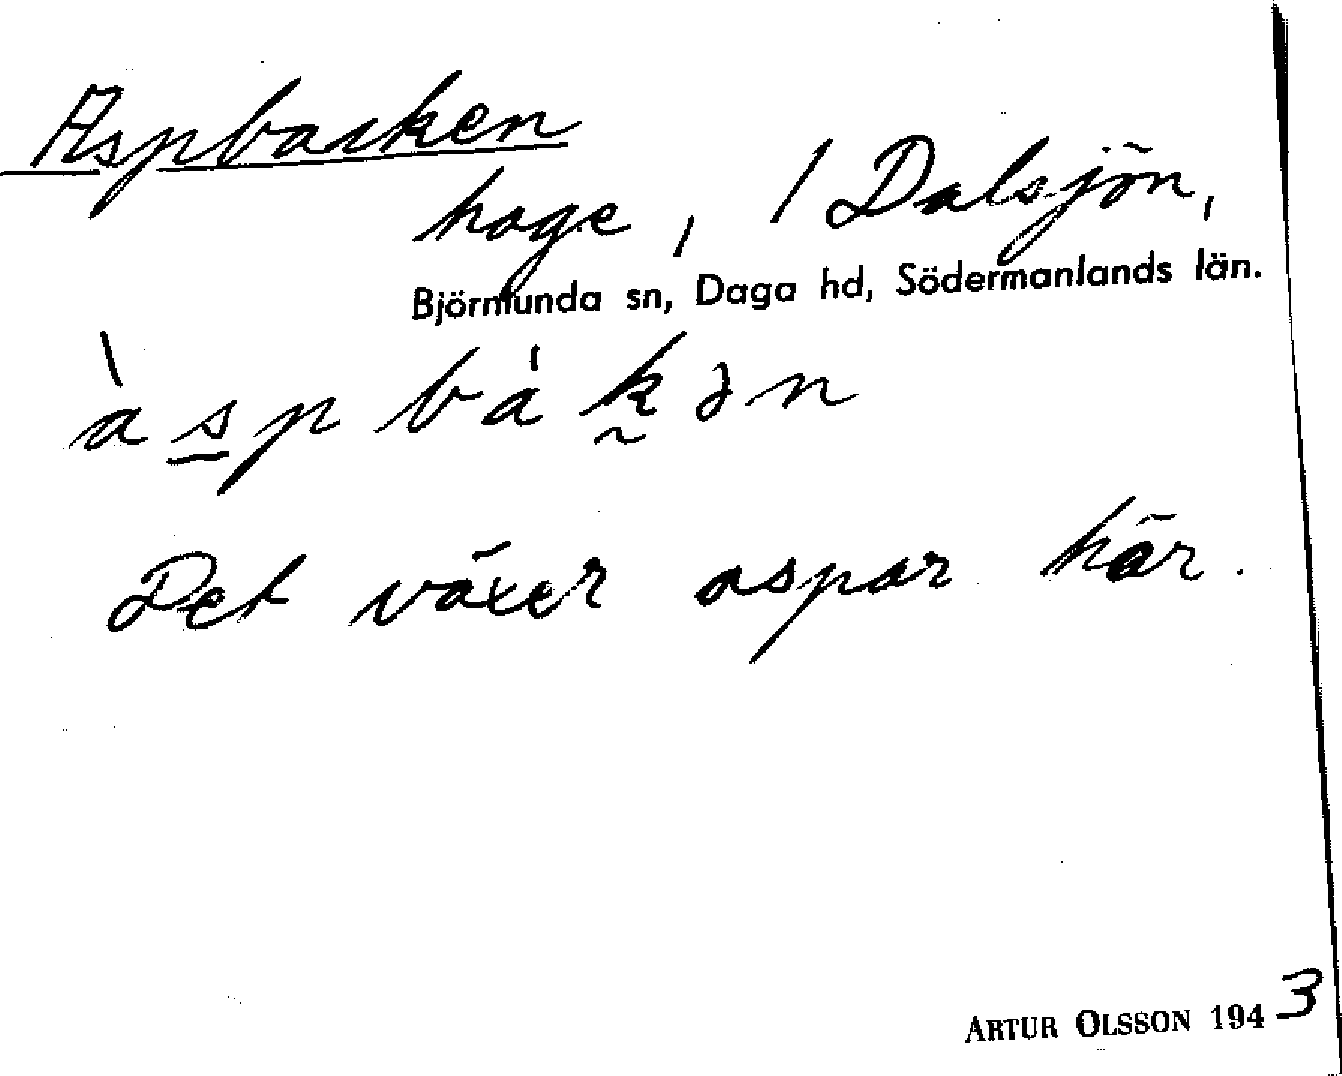 Aspbacken
hage, / Dalsjön,
Björnlunda sn, Daga hd, Södermanlands län.
àspbákən
Det växer aspar här.
ARTUR OLSSON 1943